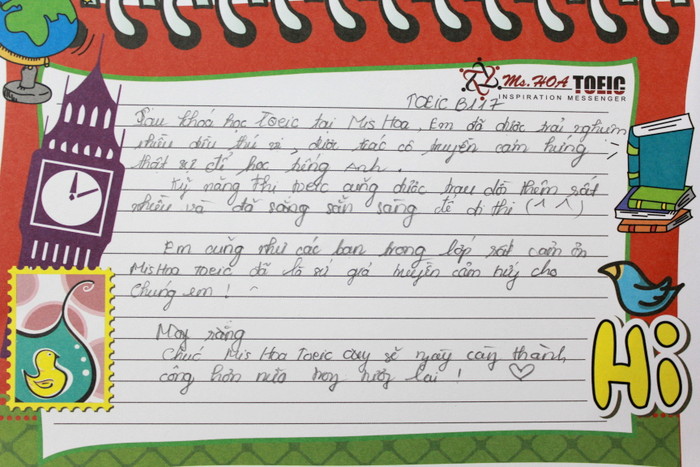 Ms.HOA TOEIC
INSPIRATION MESSENGER
TOEIC B117
Sau khoá học Toeic tại Mis Hoa, Em đã được trải nghiệm
nhiều điều thú vị, được các cô truyền cảm hứng
thật sự để học tiếng Anh.
Kỹ năng thi toeic cũng được trau dồi thêm rất
nhiều và đã sẵn sàng để đi thi (^ ^)
Em cũng như các bạn trong lớp rất cảm ơn
Mis Hoa Toeic đã là sứ giả truyền cảm hứng cho
Chúng em !
Mong rằng
Chúc Mis Hoa Toeic sẽ ngày càng thành
công hơn nữa trong tương lai !
Hi